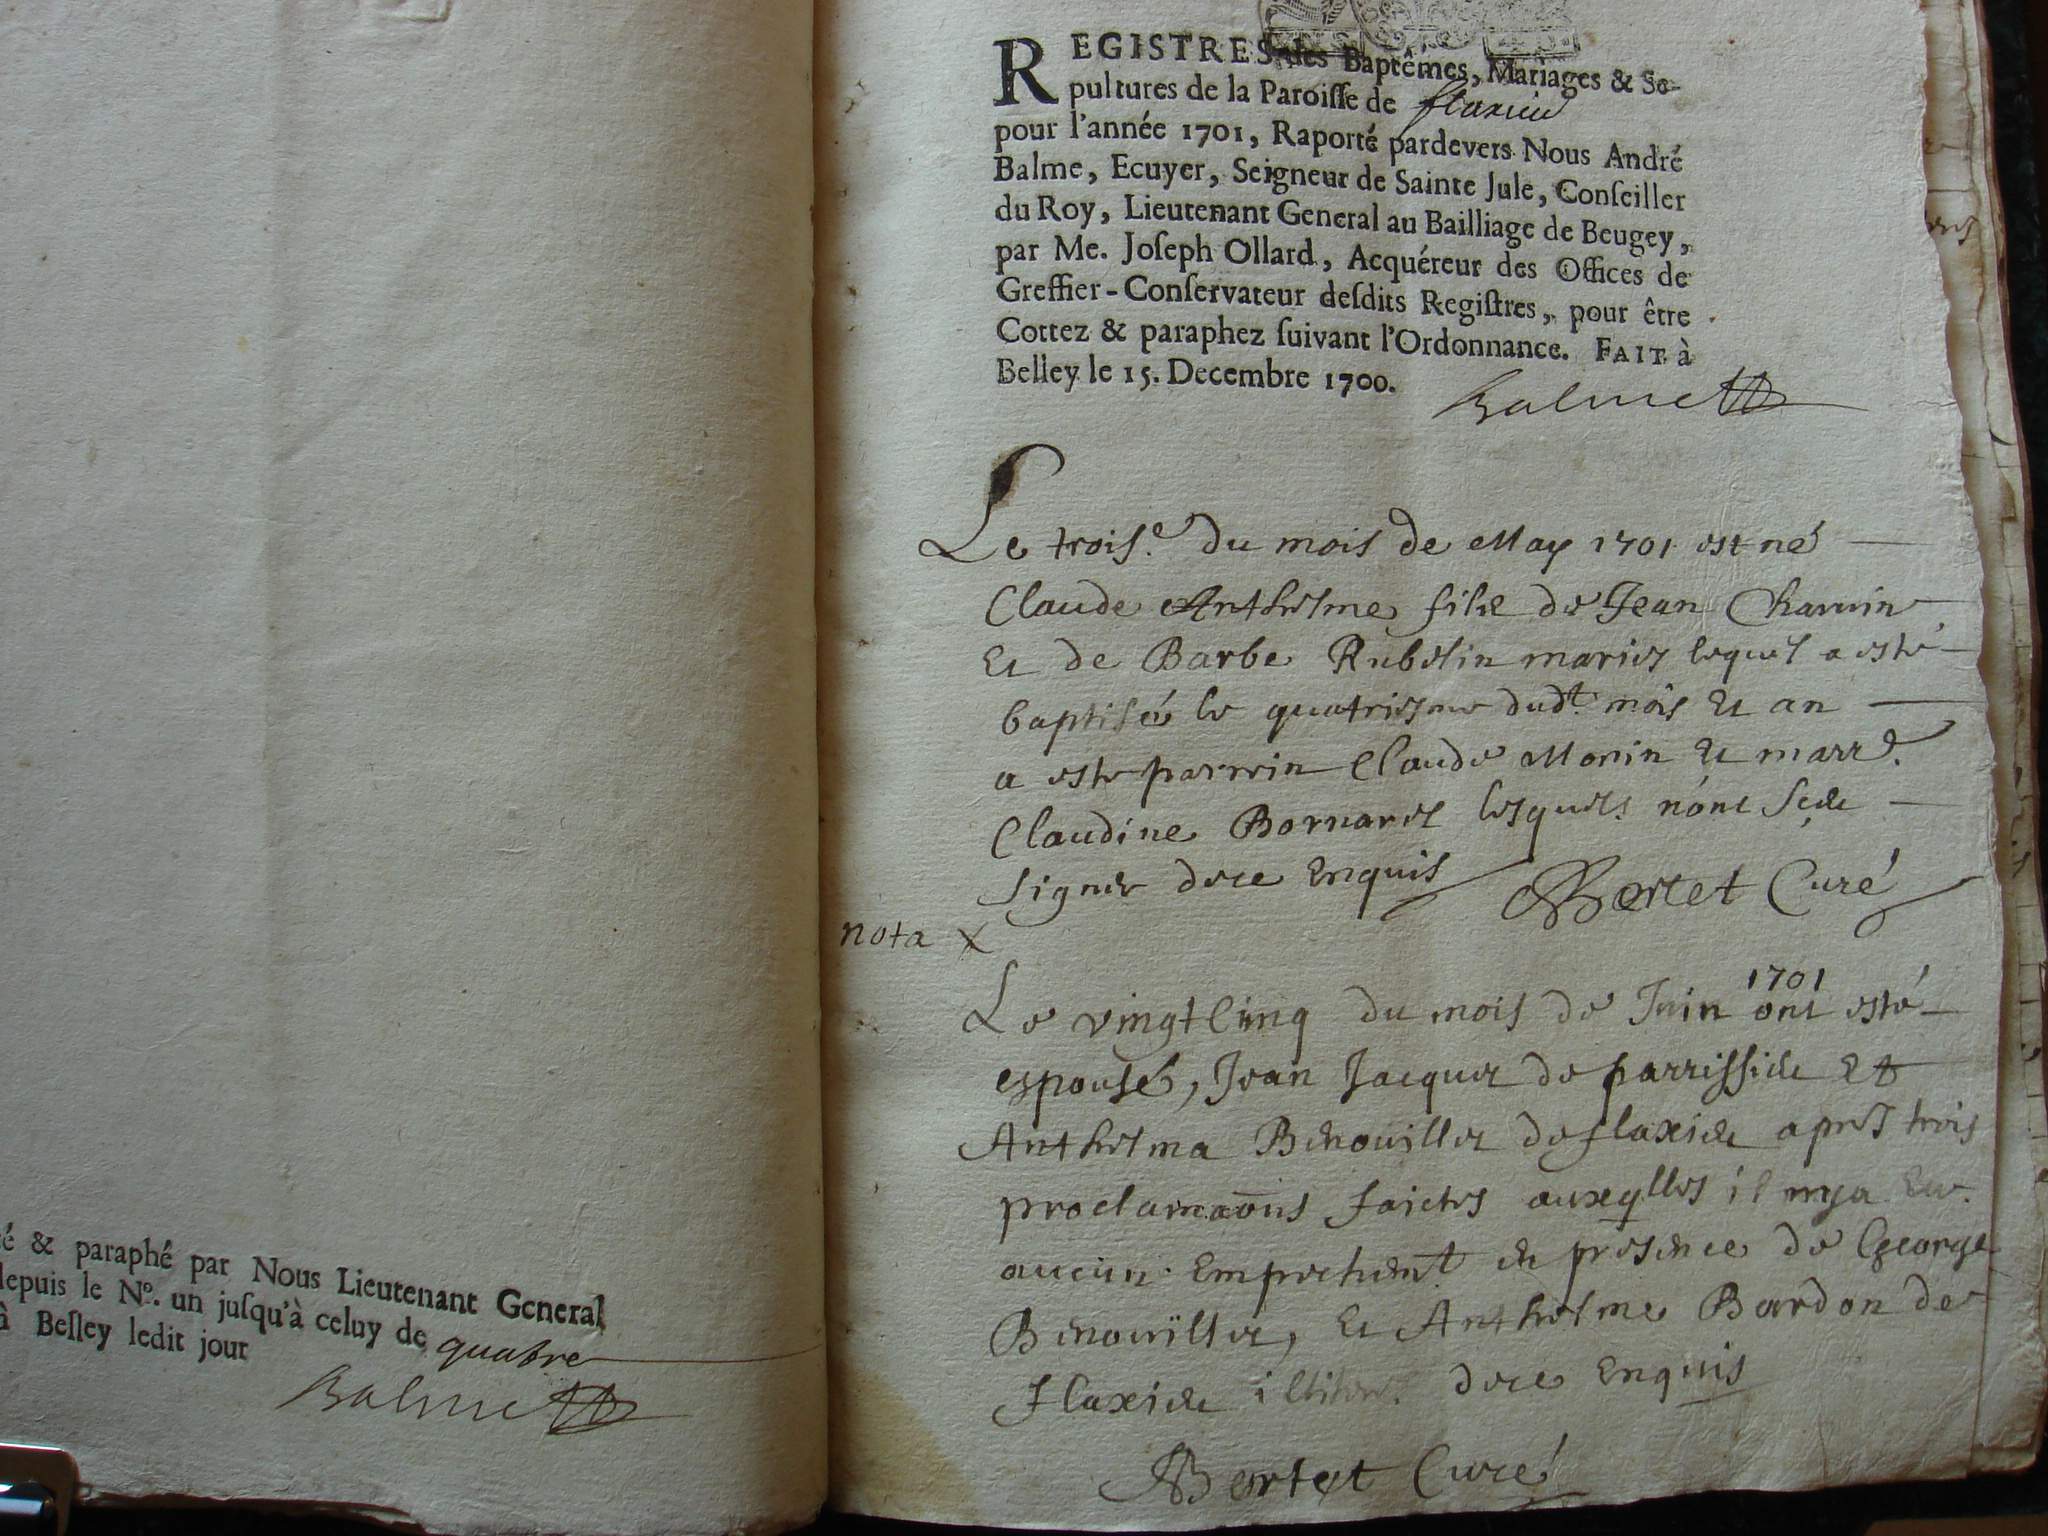 é & paraphé par Nous Lieutenant General
depuis le No. un juſqu'à celuy de quatre
à Belley ledit jour
Balme
REGISTRES des Baptêmes, Mariages & Se-
pultures de la Paroiſſe de flaxieu
pour l'année 1701, Raporté pardevers Nous André
Balme, Ecuyer, Seigneur de Sainte Jule, Conſeiller
du Roy, Lieutenant General au Bailliage de Beugey,
par Me. Joſeph Ollard, Acquéreur des Offices de
Greffier-Conſervateur deſdits Regiſtres, pour être
Cottez & paraphez ſuivant l'Ordonnance. FAIT à
Belley le 15. Decembre 1700.
Balme
Le trois.e du mois de May 1701 est né
Claude Anthelme filz de Jean Charvin
Et de Barbe Rubelin maries lequel a esté
baptisé le quatriesme dud.t mois Et an
a esté parrein Claude Monin Et marr.e
Claudine Bornarel lesquels n'ont sçeu
signer de ce Enquis Bertet Curé
nota X
Le vingt Cinq du mois de Juin 1701 ont esté
espousé, Jean Jacquer de parrissieu Et
Anthelma Benouillier de flaxieu apres trois
proclamaōns faictes auxqlles il ny a Eu
aucun Empechem.t en presence de George
Benouïllier, Et Anthelme Bardon de
flaxieu de ce Enquis
Bertet Curé